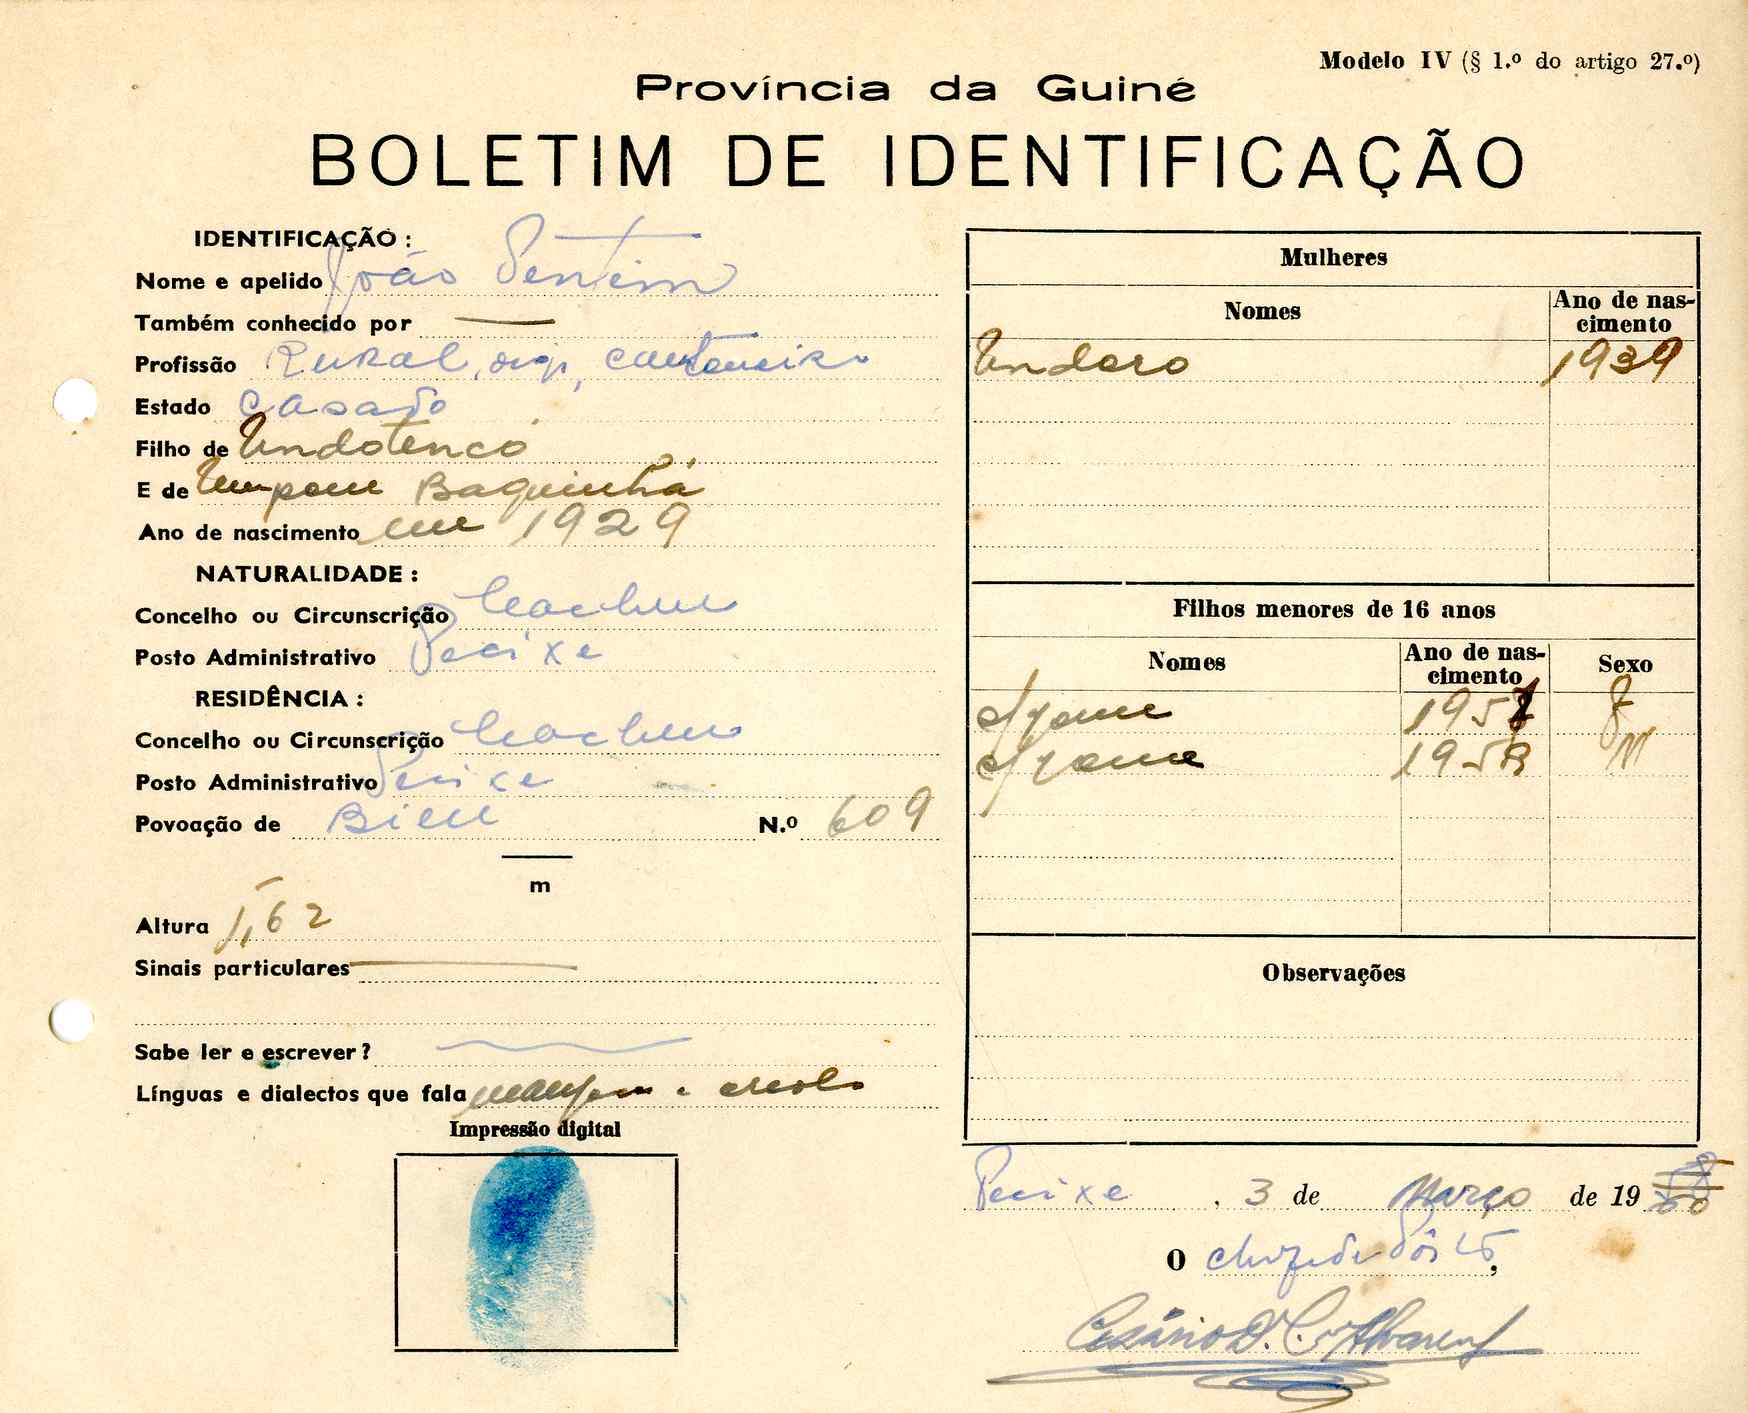 Modelo IV (§ 1.º do artigo 27.º)
Província da Guiné
BOLETIM DE IDENTIFICAÇÃO
IDENTIFICAÇÃO :
Nome e apelido João Pentém
Também conhecido por —
Profissão Rural, cantoneiro
Estado Casado
Filho de Undotencó
E de Baquinhá
Ano de nascimento em 1929
NATURALIDADE :
Concelho ou Circunscrição Cacheu
Posto Administrativo Pecixe
RESIDÊNCIA :
Concelho ou Circunscrição Cacheu
Posto Administrativo Pecixe
Povoação de N.º 609
m
Altura 1,62
Sinais particulares —
Sabe ler e escrever ?
Línguas e dialectos que fala e creolo
Impressão digital
Mulheres
Nomes Ano de nas-
cimento
Undoro 1939
Filhos menores de 16 anos
Nomes Ano de nas-
cimento Sexo
Observações
Pecixe, 3 de Março de 19
O chefe de Pôsto,